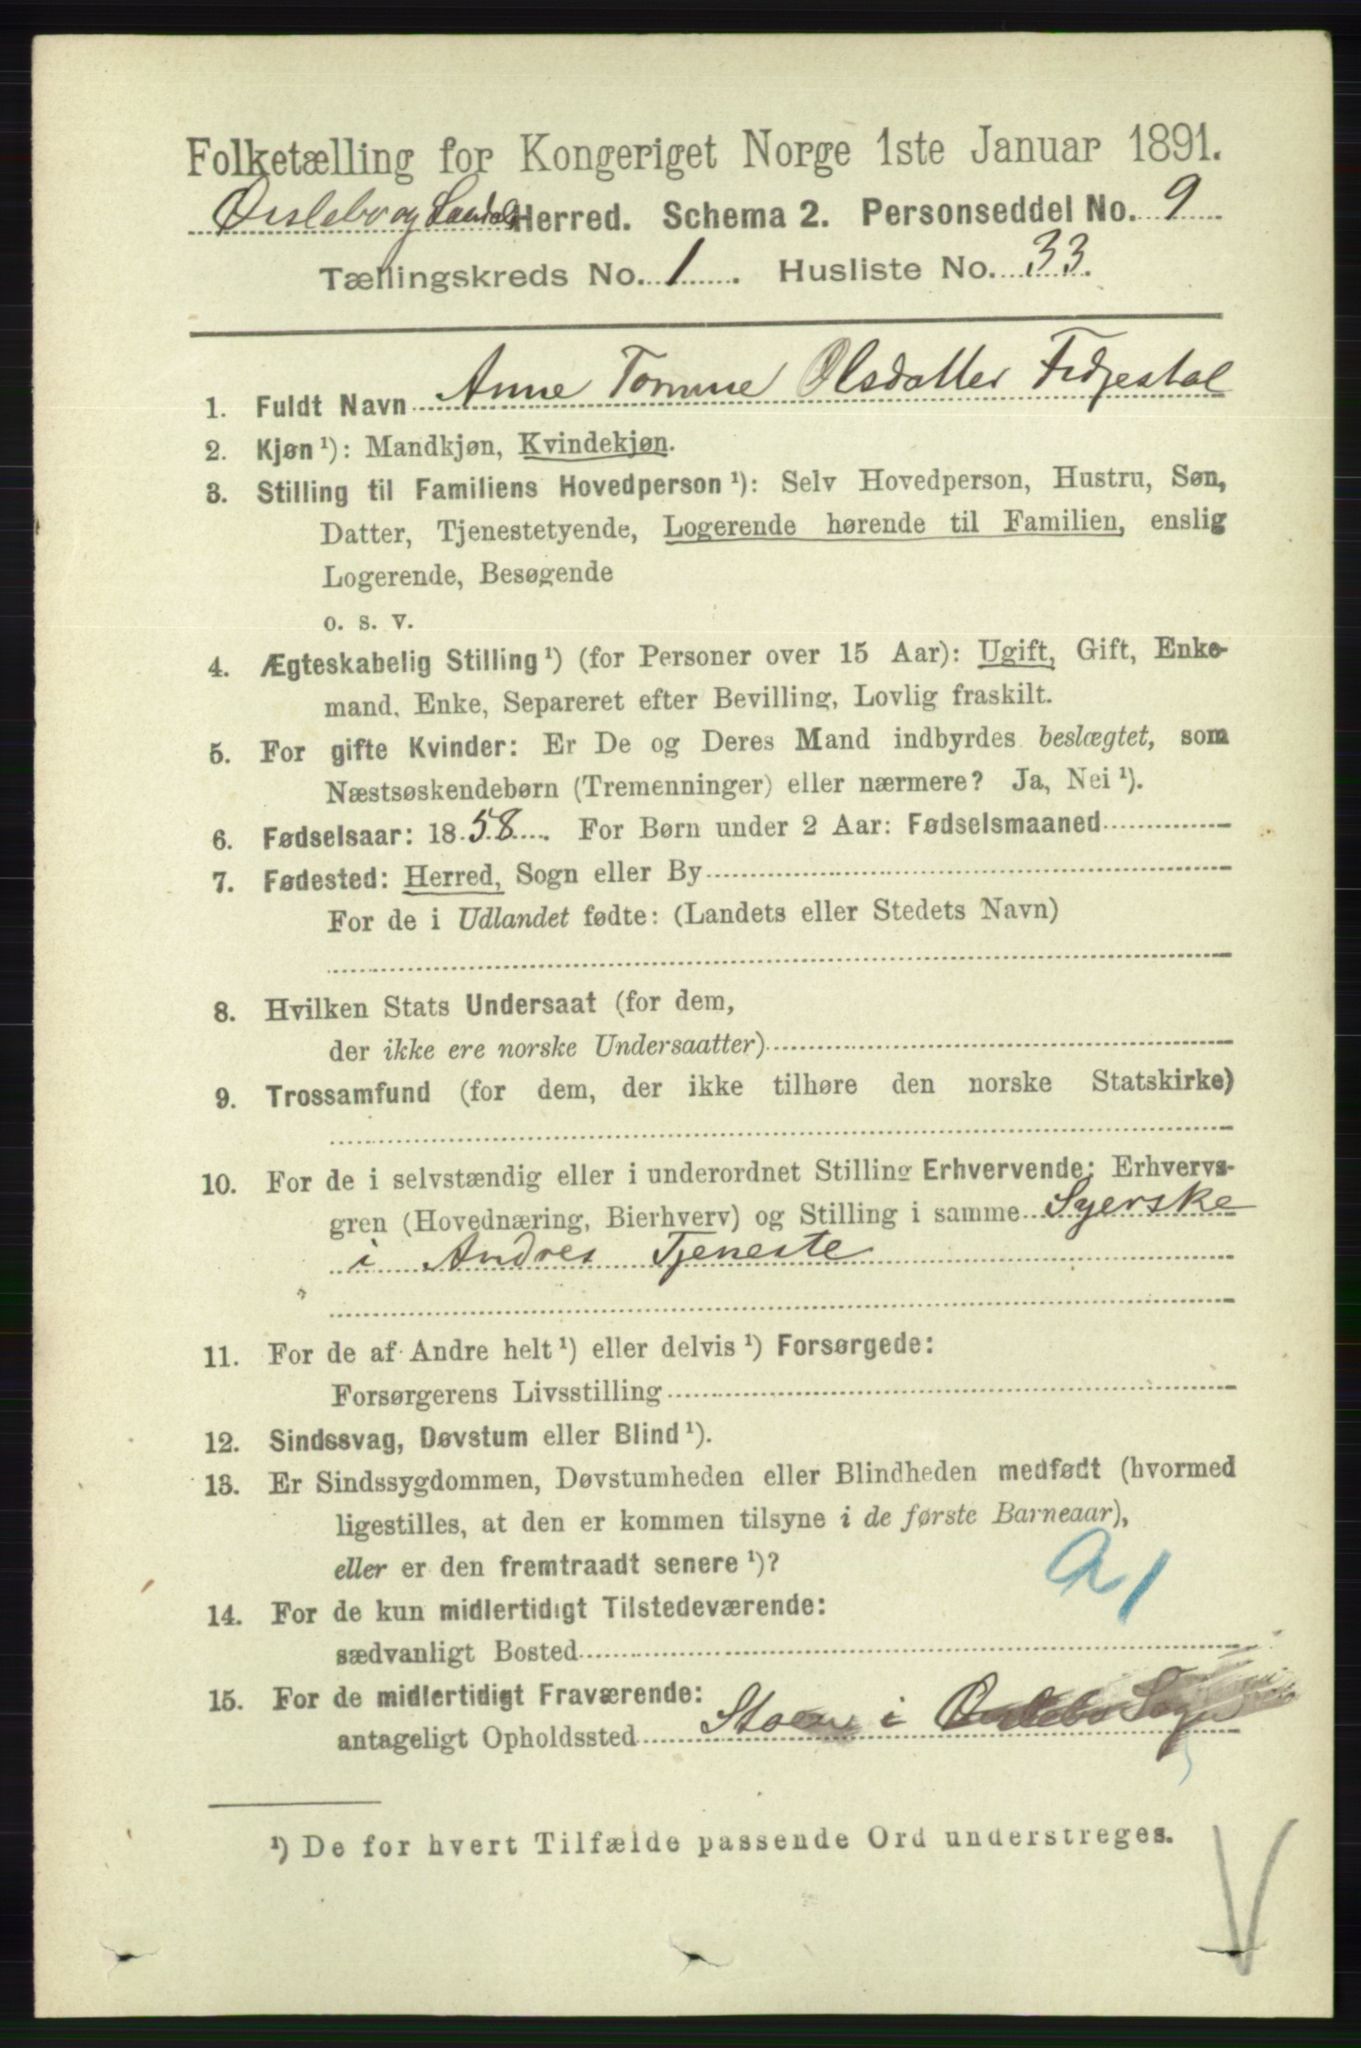 Folketælling for Kongeriget Norge 1ste Januar 1891.
Øislebø og Laudals Herred. Schema 2. Personseddel No. 9
Tællingskreds No. 1. Husliste No. 33.
1. Fuldt Navn Anne Tomine Olsdatter Fidjestøl
2. Kjøn ¹): Mandkjøn, Kvindekjøn.
3. Stilling til Familiens Hovedperson ¹): Selv Hovedperson, Hustru, Søn,
Datter, Tjenestetyende, Logerende hørende til Familien, enslig
Logerende, Besøgende
o. s. v.
4. Ægteskabelig Stilling ¹) (for Personer over 15 Aar): Ugift, Gift, Enke-
mand, Enke, Separeret efter Bevilling, Lovlig fraskilt.
5. For gifte Kvinder: Er De og Deres Mand indbyrdes beslægtet, som
Næstsøskendebørn (Tremenninger) eller nærmere? Ja, Nei ¹).
6. Fødselsaar: 1858. For Børn under 2 Aar: Fødselsmaaned
7. Fødested: Herred, Sogn eller By
For de i Udlandet fødte: (Landets eller Stedets Navn)
8. Hvilken Stats Undersaat (for dem,
der ikke ere norske Undersaatter)
9. Trossamfund (for dem, der ikke tilhøre den norske Statskirke)
10. For de i selvstændig eller i underordnet Stilling Erhvervende: Erhvervs-
gren (Hovednæring, Bierhverv) og Stilling i samme Syerske
i Andres Tjeneste
11. For de af Andre helt ¹) eller delvis ¹) Forsørgede:
Forsørgerens Livsstilling
12. Sindssvag, Døvstum eller Blind ¹).
13. Er Sindssygdommen, Døvstumheden eller Blindheden medfødt (hvormed
ligestilles, at den er kommen tilsyne i de første Barneaar),
eller er den fremtraadt senere ¹)?
a1
14. For de kun midlertidigt Tilstedeværende:
sædvanligt Bosted
15. For de midlertidigt Fraværende:
antageligt Opholdssted i Øislebø Sogn
¹) De for hvert Tilfælde passende Ord understreges.